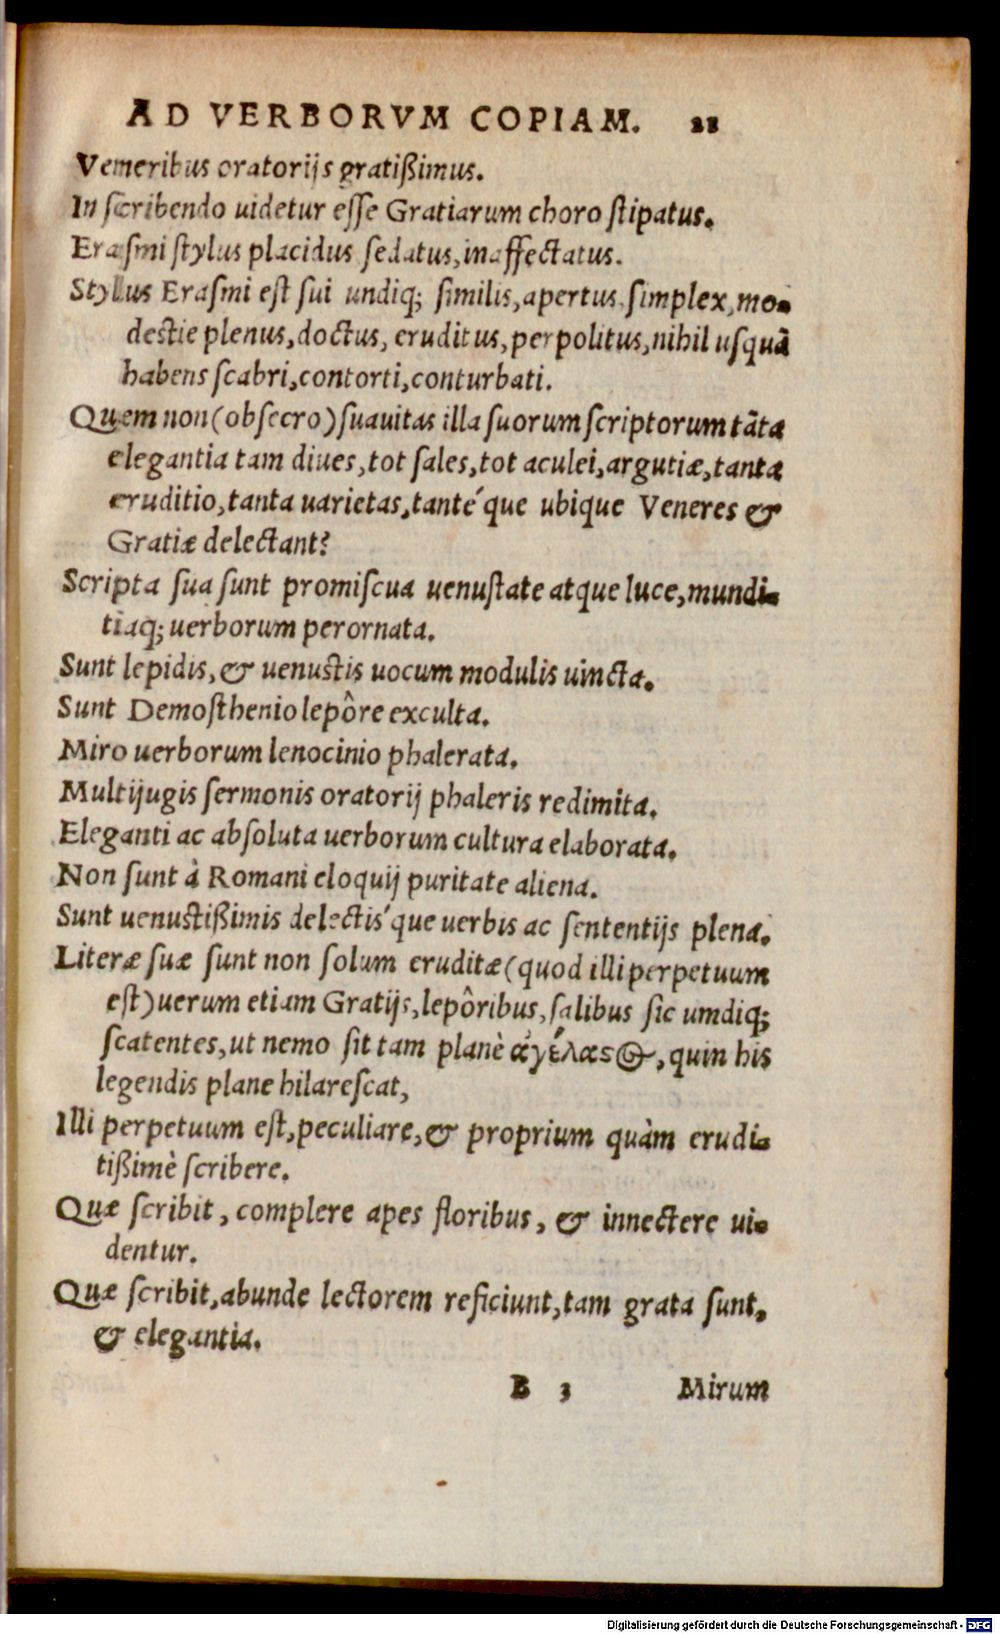 AD VERBORVM COPIAM. 21
Veneribus oratorijs gratißimus.
In scribendo uidetur esse Gratiarum choro stipatus.
Erasmi stylus placidus sedatus, inaffectatus.
Stylus Erasmi est sui undiq; similis, apertus, simplex, mo-
destie plenus, doctus, eruditus, perpolitus, nihil usquã
habens scabri, contorti, conturbati.
Quem non (obsecro) suauitas illa suorum scriptorum tãta
elegantia tam diues, tot sales, tot aculei, argutiæ, tanta
eruditio, tanta uarietas, tanté que ubique Veneres &
Gratiæ delectant?
Scripta sua sunt promiscua uenustate atque luce, mundi-
tiaq; uerborum perornata.
Sunt lepidis, & uenustis uocum modulis uincta.
Sunt Demosthenio lepôre exculta.
Miro uerborum lenocinio phalerata.
Multijugis sermonis oratorij phaleris redimita.
Eleganti ac absoluta uerborum cultura elaborata.
Non sunt à Romani eloquij puritate aliena.
Sunt uenustißimis delectis´que uerbis ac sententijs plena.
Literæ suæ sunt non solum eruditæ (quod illi perpetuum
est) uerum etiam Gratijs, lepôribus, salibus sic undiq;
scatentes, ut nemo sit tam planè ἀγέλαςος, quin his
legendis plane hilarescat,
Illi perpetuum est, peculiare, & proprium quàm erudi-
tißimè scribere.
Quæ scribit, complere apes floribus, & innectere ui-
dentur.
Quæ scribit, abunde lectorem reficiunt, tam grata sunt,
& elegantia.
B 3 Mirum
Digitalisierung gefördert durch die Deutsche Forschungsgemeinschaft - DFG